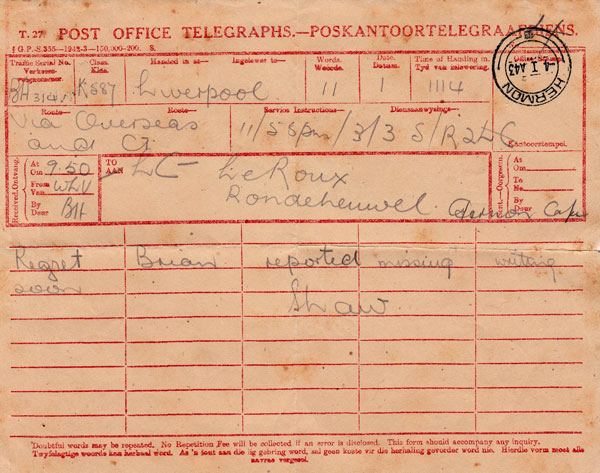 T. 27. POST OFFICE TELEGRAPHS.—POSKANTOORTELEGRAAFDIENS.
Traffic Serial No. Class. Handed in at— Ingelewer te— Words. Date. Time of Handing in. Office Stamp
Klas. Woorde. Datum. Tyd van inlewering.
K587 Liverpool 11 1 1114
HERMON
1 I A43
Route— Roete— Service Instructions— Dienaanwysings—
Via Overseas
and CT
Kantoorstempel.
Received.—Ontvang.
At Om 9.50
From Van WLV
By Deur BH
TO AAN LC — Le Roux
Rondeheuwel. Hermon Cape
At Om
To Na
By Deur
Regret Brian reported missing writing
soon
Shaw
Doubtful words may be repeated. No Repetition Fee will be collected if an error is disclosed. This form should accompany any inquiry.
Twyfelagtige woorde kan herhaal word. As 'n fout aan die lig gebring word, sal geen koste vir die herhaling gevorder word nie. Hierdie vorm moet alle
navrae vergesel.